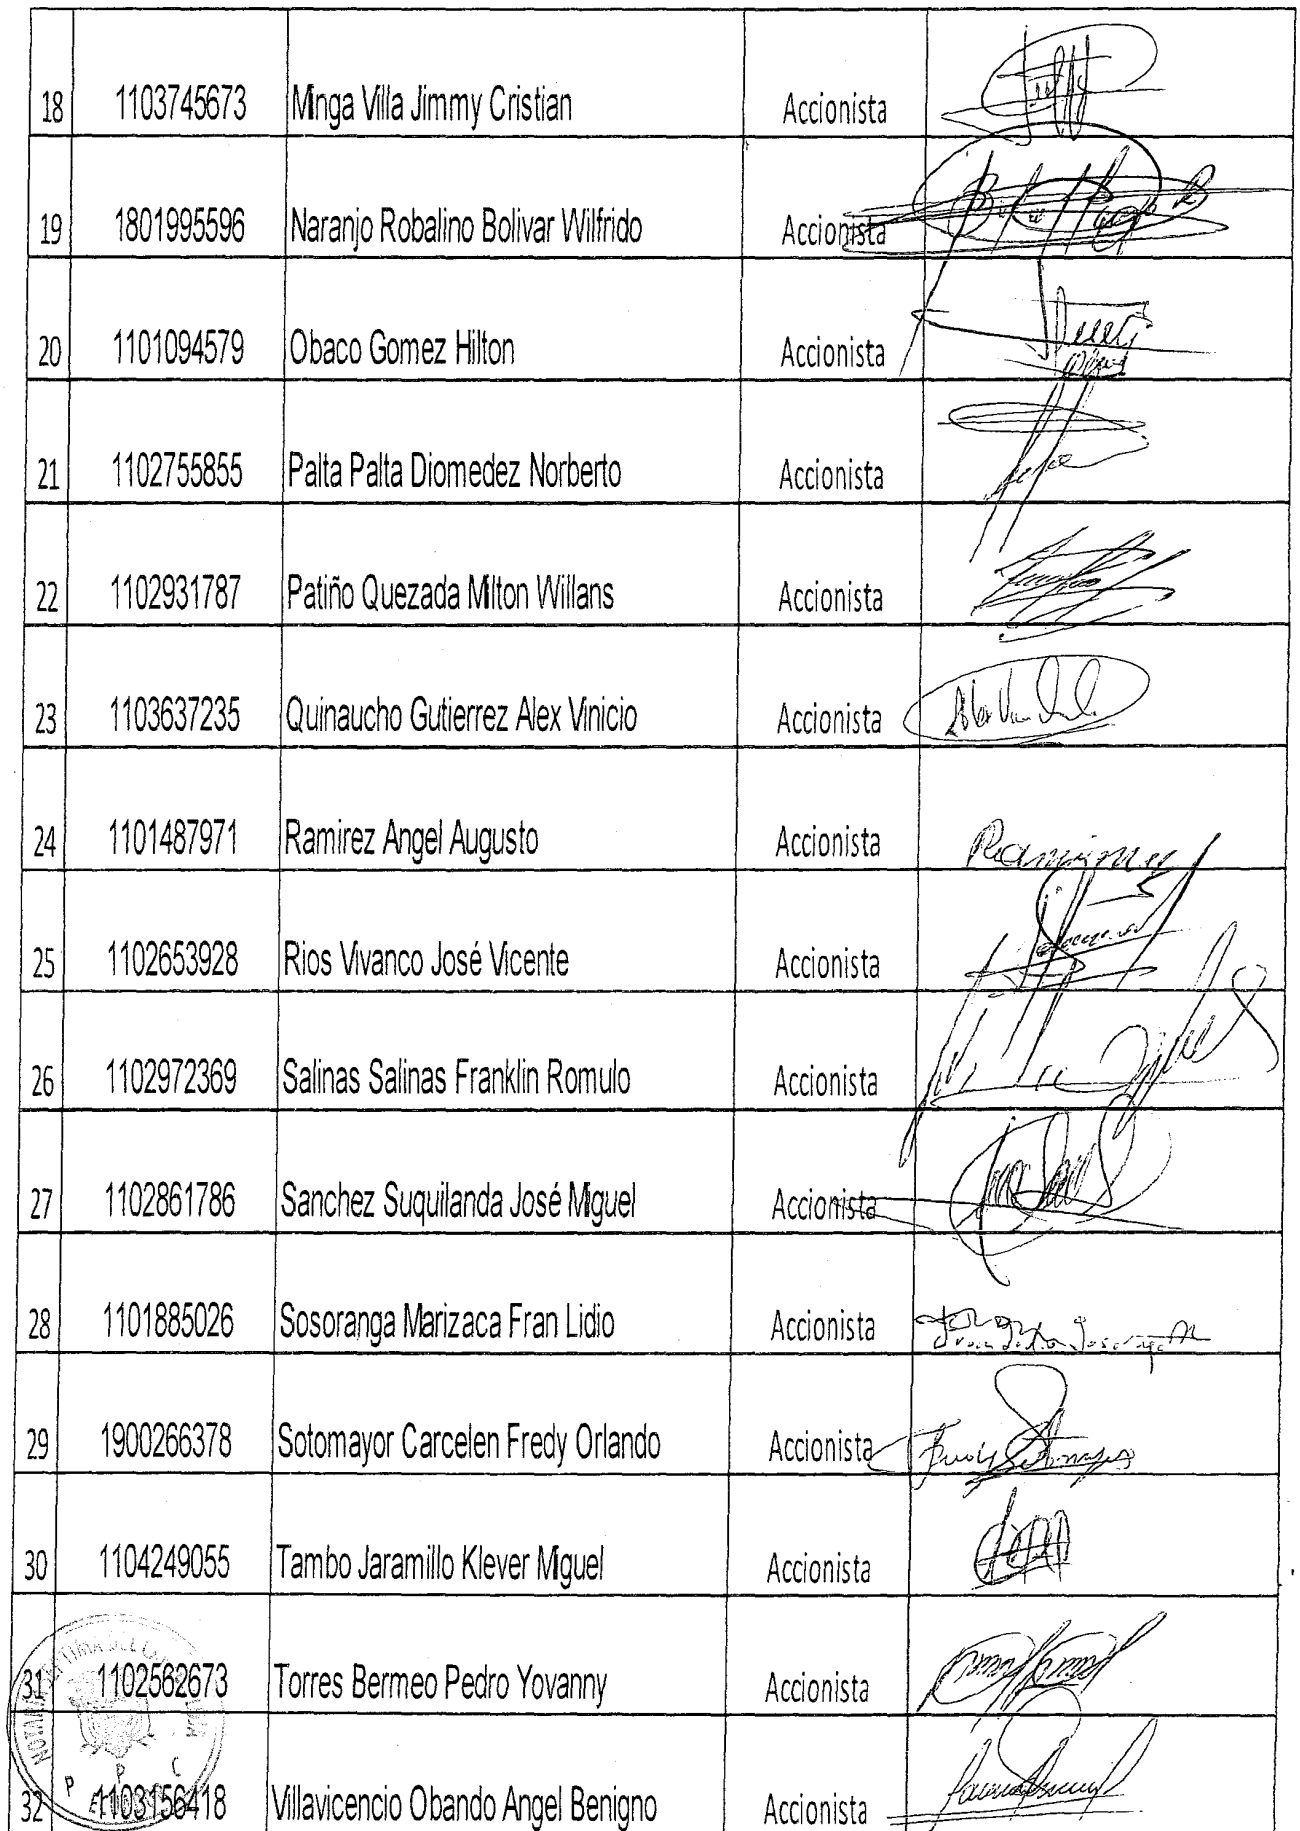 18 1103745673 Minga Villa Jimmy Cristian Accionista
19 1801995596 Naranjo Robalino Bolivar Wilfrido Accionista
20 1101094579 Obaco Gomez Hilton Accionista
21 1102755855 Palta Palta Diomedez Norberto Accionista
22 1102931787 Patiño Quezada Milton Willans Accionista
23 1103637235 Quinaucho Gutierrez Alex Vinicio Accionista
24 1101487971 Ramirez Angel Augusto Accionista
25 1102653928 Rios Vivanco José Vicente Accionista
26 1102972369 Salinas Salinas Franklin Romulo Accionista
27 1102861786 Sanchez Suquilanda José Miguel Accionista
28 1101885026 Sosoranga Marizaca Fran Lidio Accionista
29 1900266378 Sotomayor Carcelen Fredy Orlando Accionista
30 1104249055 Tambo Jaramillo Klever Miguel Accionista
31 1102562673 Torres Bermeo Pedro Yovanny Accionista
32 1103156418 Villavicencio Obando Angel Benigno Accionista